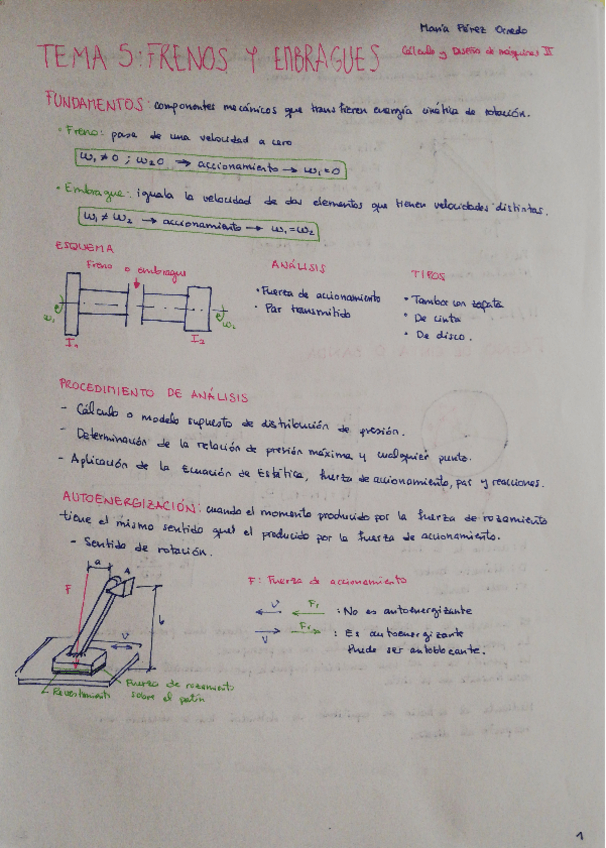 María Pérez Ornedo
TEMA 5: FRENOS Y EMBRAGUES
Cálculo y Diseño de máquinas II
FUNDAMENTOS: componentes mecánicos que transfieren energía cinética de rotación.
· Freno: pasa de una velocidad a cero
ω₁ ≠ 0 ; ω₂0 → accionamiento → ω₁ = 0
· Embrague: iguala la velocidad de dos elementos que tienen velocidades distintas.
ω₁ ≠ ω₂ → accionamiento → ω₁ = ω₂
ESQUEMA
Freno o embrague
ω₁
ω₂
I₁
I₂
ANÁLISIS
· Fuerza de accionamiento
· Par transmitido
TIPOS
· Tambor con zapata
· De cinta
· De disco.
PROCEDIMIENTO DE ANÁLISIS
- Cálculo o modelo supuesto de distribución de presión.
- Determinación de la relación de presión máxima y cualquier punto.
- Aplicación de la Ecuación de Estática, fuerza de accionamiento, par y reacciones.
AUTOENERGIZACIÓN: cuando el momento producido por la fuerza de rozamiento
tiene el mismo sentido que el producido por la fuerza de accionamiento.
- Sentido de rotación.
a
A
F
b
v
Revestimiento
Fuerza de rozamiento
sobre el patín
F: Fuerza de accionamiento
v Fr : No es autoenergizante
v Fr : Es autoenergizante
Puede ser autoblocante.
1